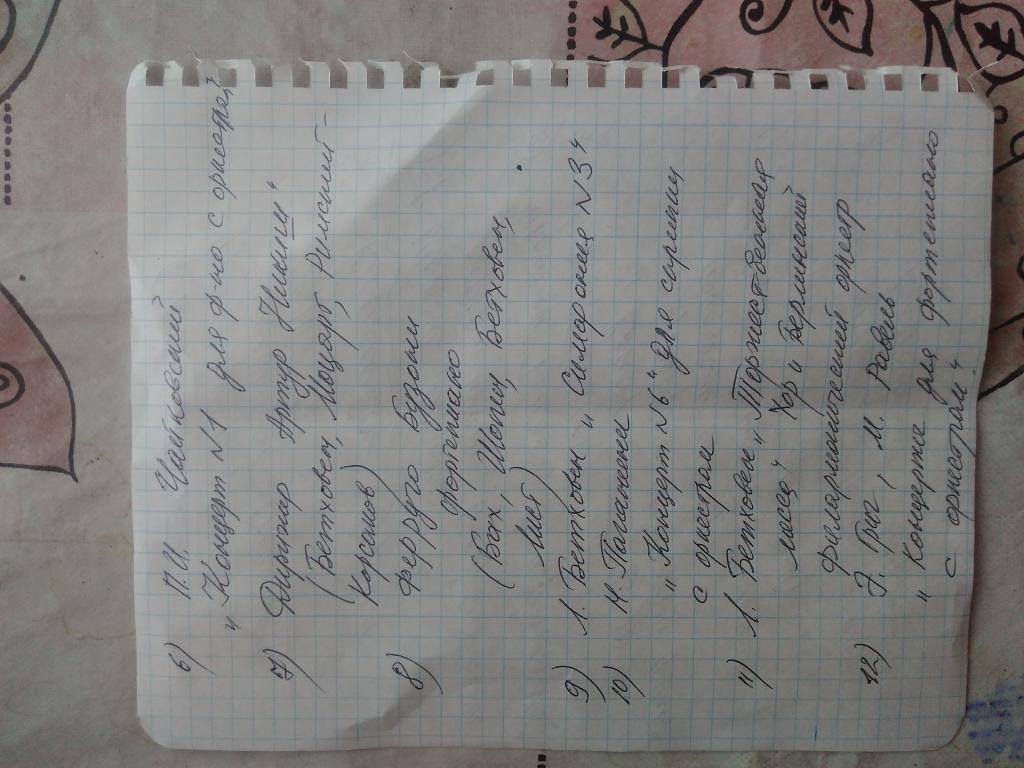 6) П.И. Чайковский
"Концерт N1 для ф-но с оркестр"
7) Дирижер Артур Никиш"
(Бетховен, Моцарт, Римский-
Корсаков)
8) Ферруго Бузони
фортепиано
(Бах, Шопен, Бетховен,
Лист)
9) Л. Бетховен "Симфония N3"
10) Н. Паганини
"Концерт N6" для скрипки
с оркестром
11) Л. Бетховен "Торжественная
месса" Хор и Берлинский
филармонический оркестр
12) Э. Григ, М. Равель
"Концерты для фортепиано
с оркестром"